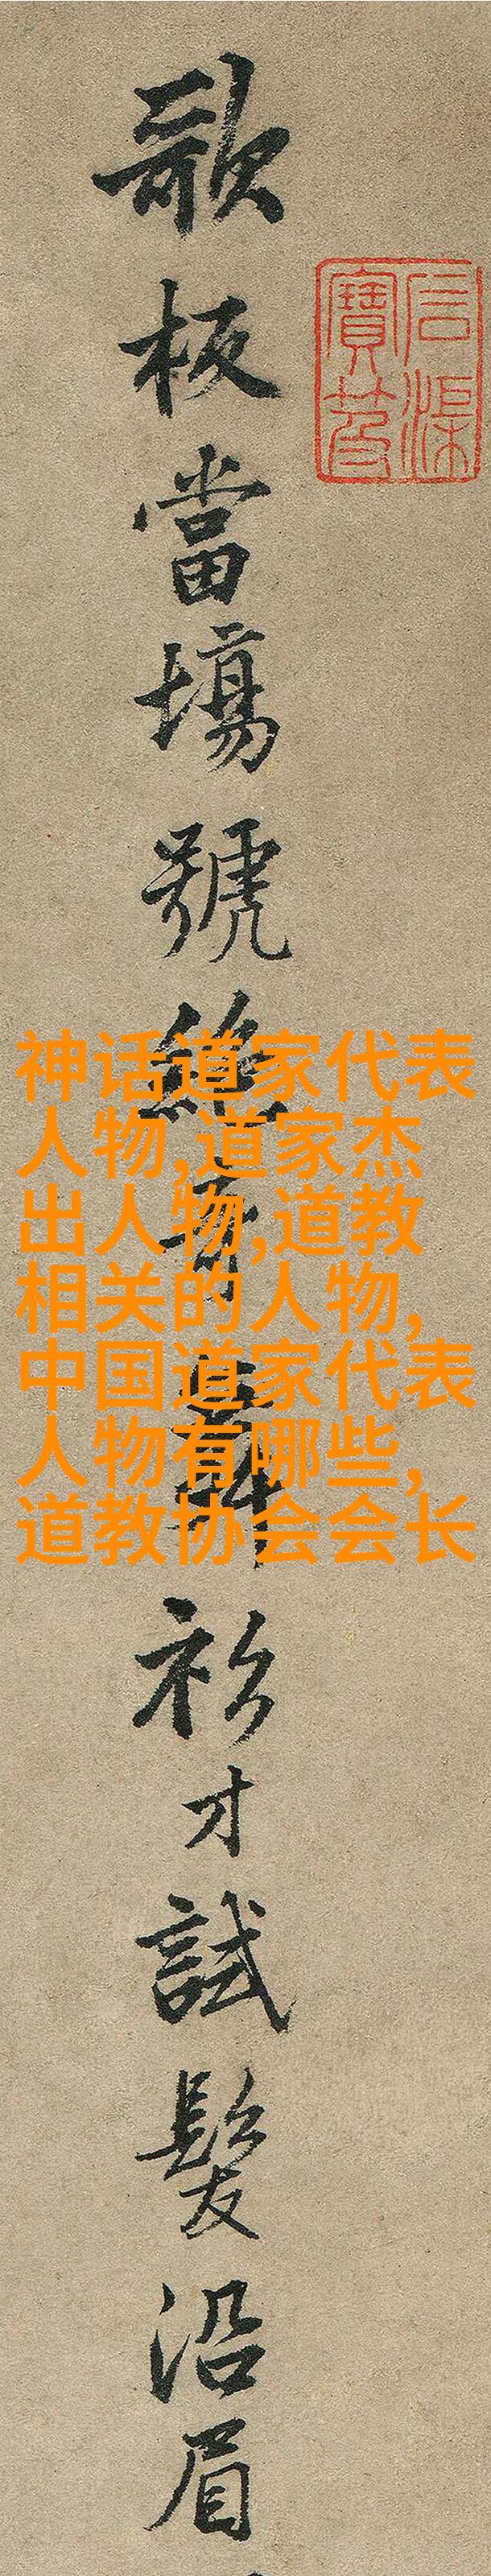 歌板當塲號絕奇舞衫才試髮沿眉
石渠
寶笈
神话道家代表
人物,道家杰
出人物,道教
相关的人物,
中国道家代表
人物有哪些,
道教协会会长